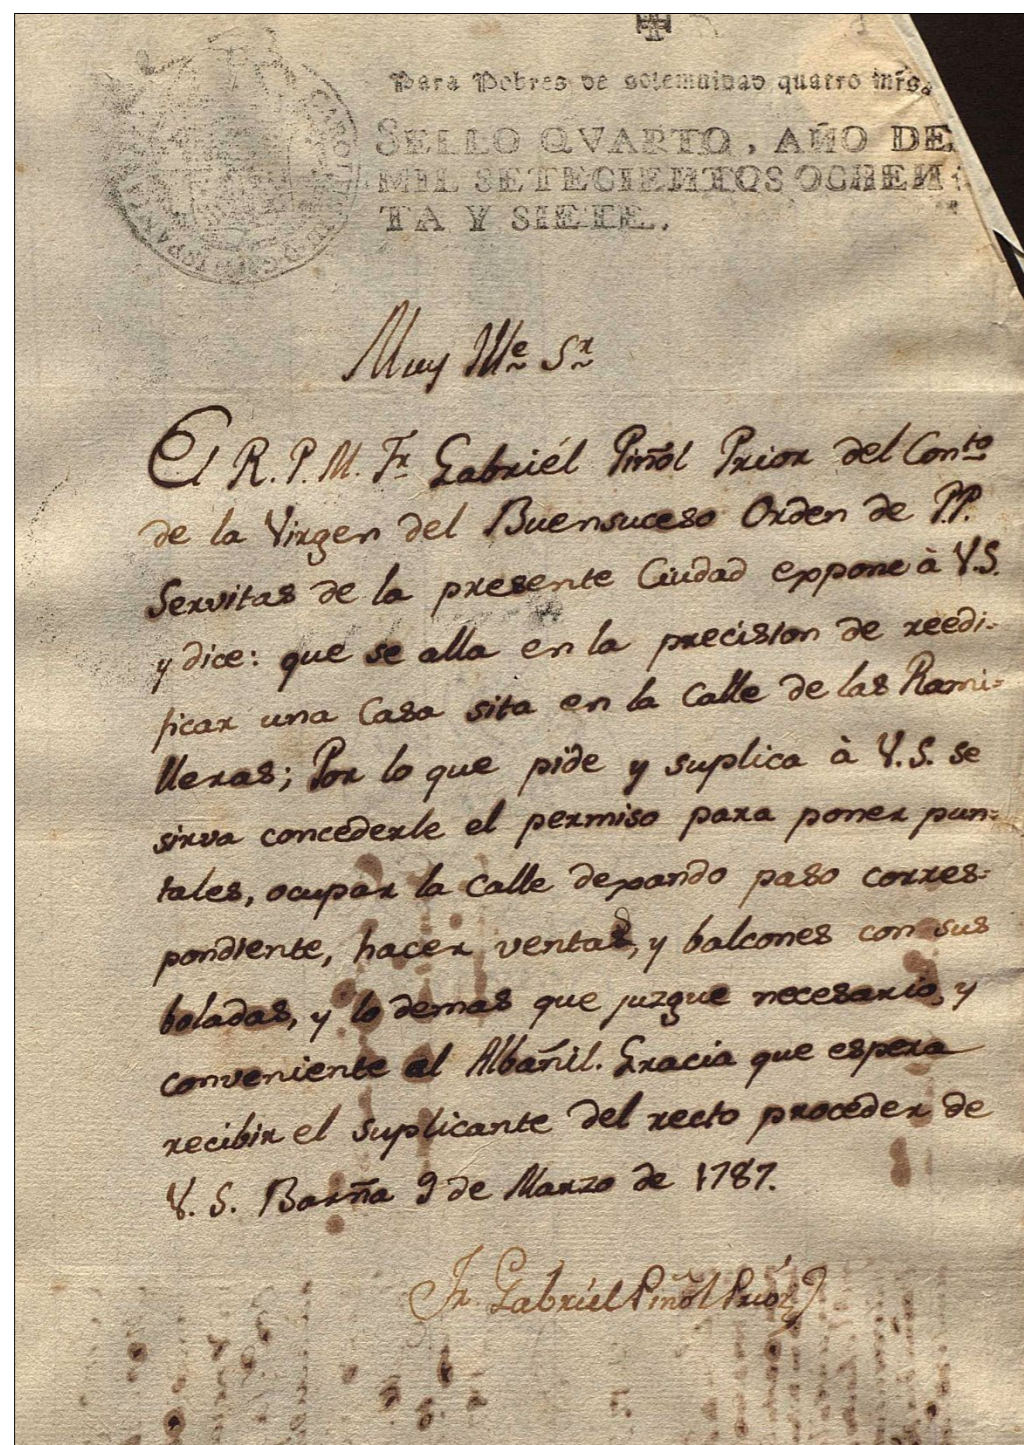 Para Pobres de solemnidad quatro mrs.
SELLO QVARTO, AÑO DE
MIL SETECIENTOS OCHEN-
TA Y SIETE.
Muy Ille Sr
El R. P. M. Fr Gabriél Piñol Prior del Conto
de la Virgen del Buensuceso Orden de P.P.
Servitas de la presente Ciudad expone à V.S.
y dice: que se alla en la precision de reedi-
ficar una Casa sita en la Calle de las Rami-
lleras; Por lo que pide y suplica à V.S. se
sirva concederle el permiso para poner pun-
tales, ocupar la Calle dexando paso corres-
pondiente, hacer ventas, y balcones con sus
boladas, y lo demas que juzgue necesario, y
conveniente el Albañil. Gracia que espera
recibir el suplicante del recto proceder de
V. S. Barña 9 de Marzo de 1787.
Fr. Gabriel Piñol Prior